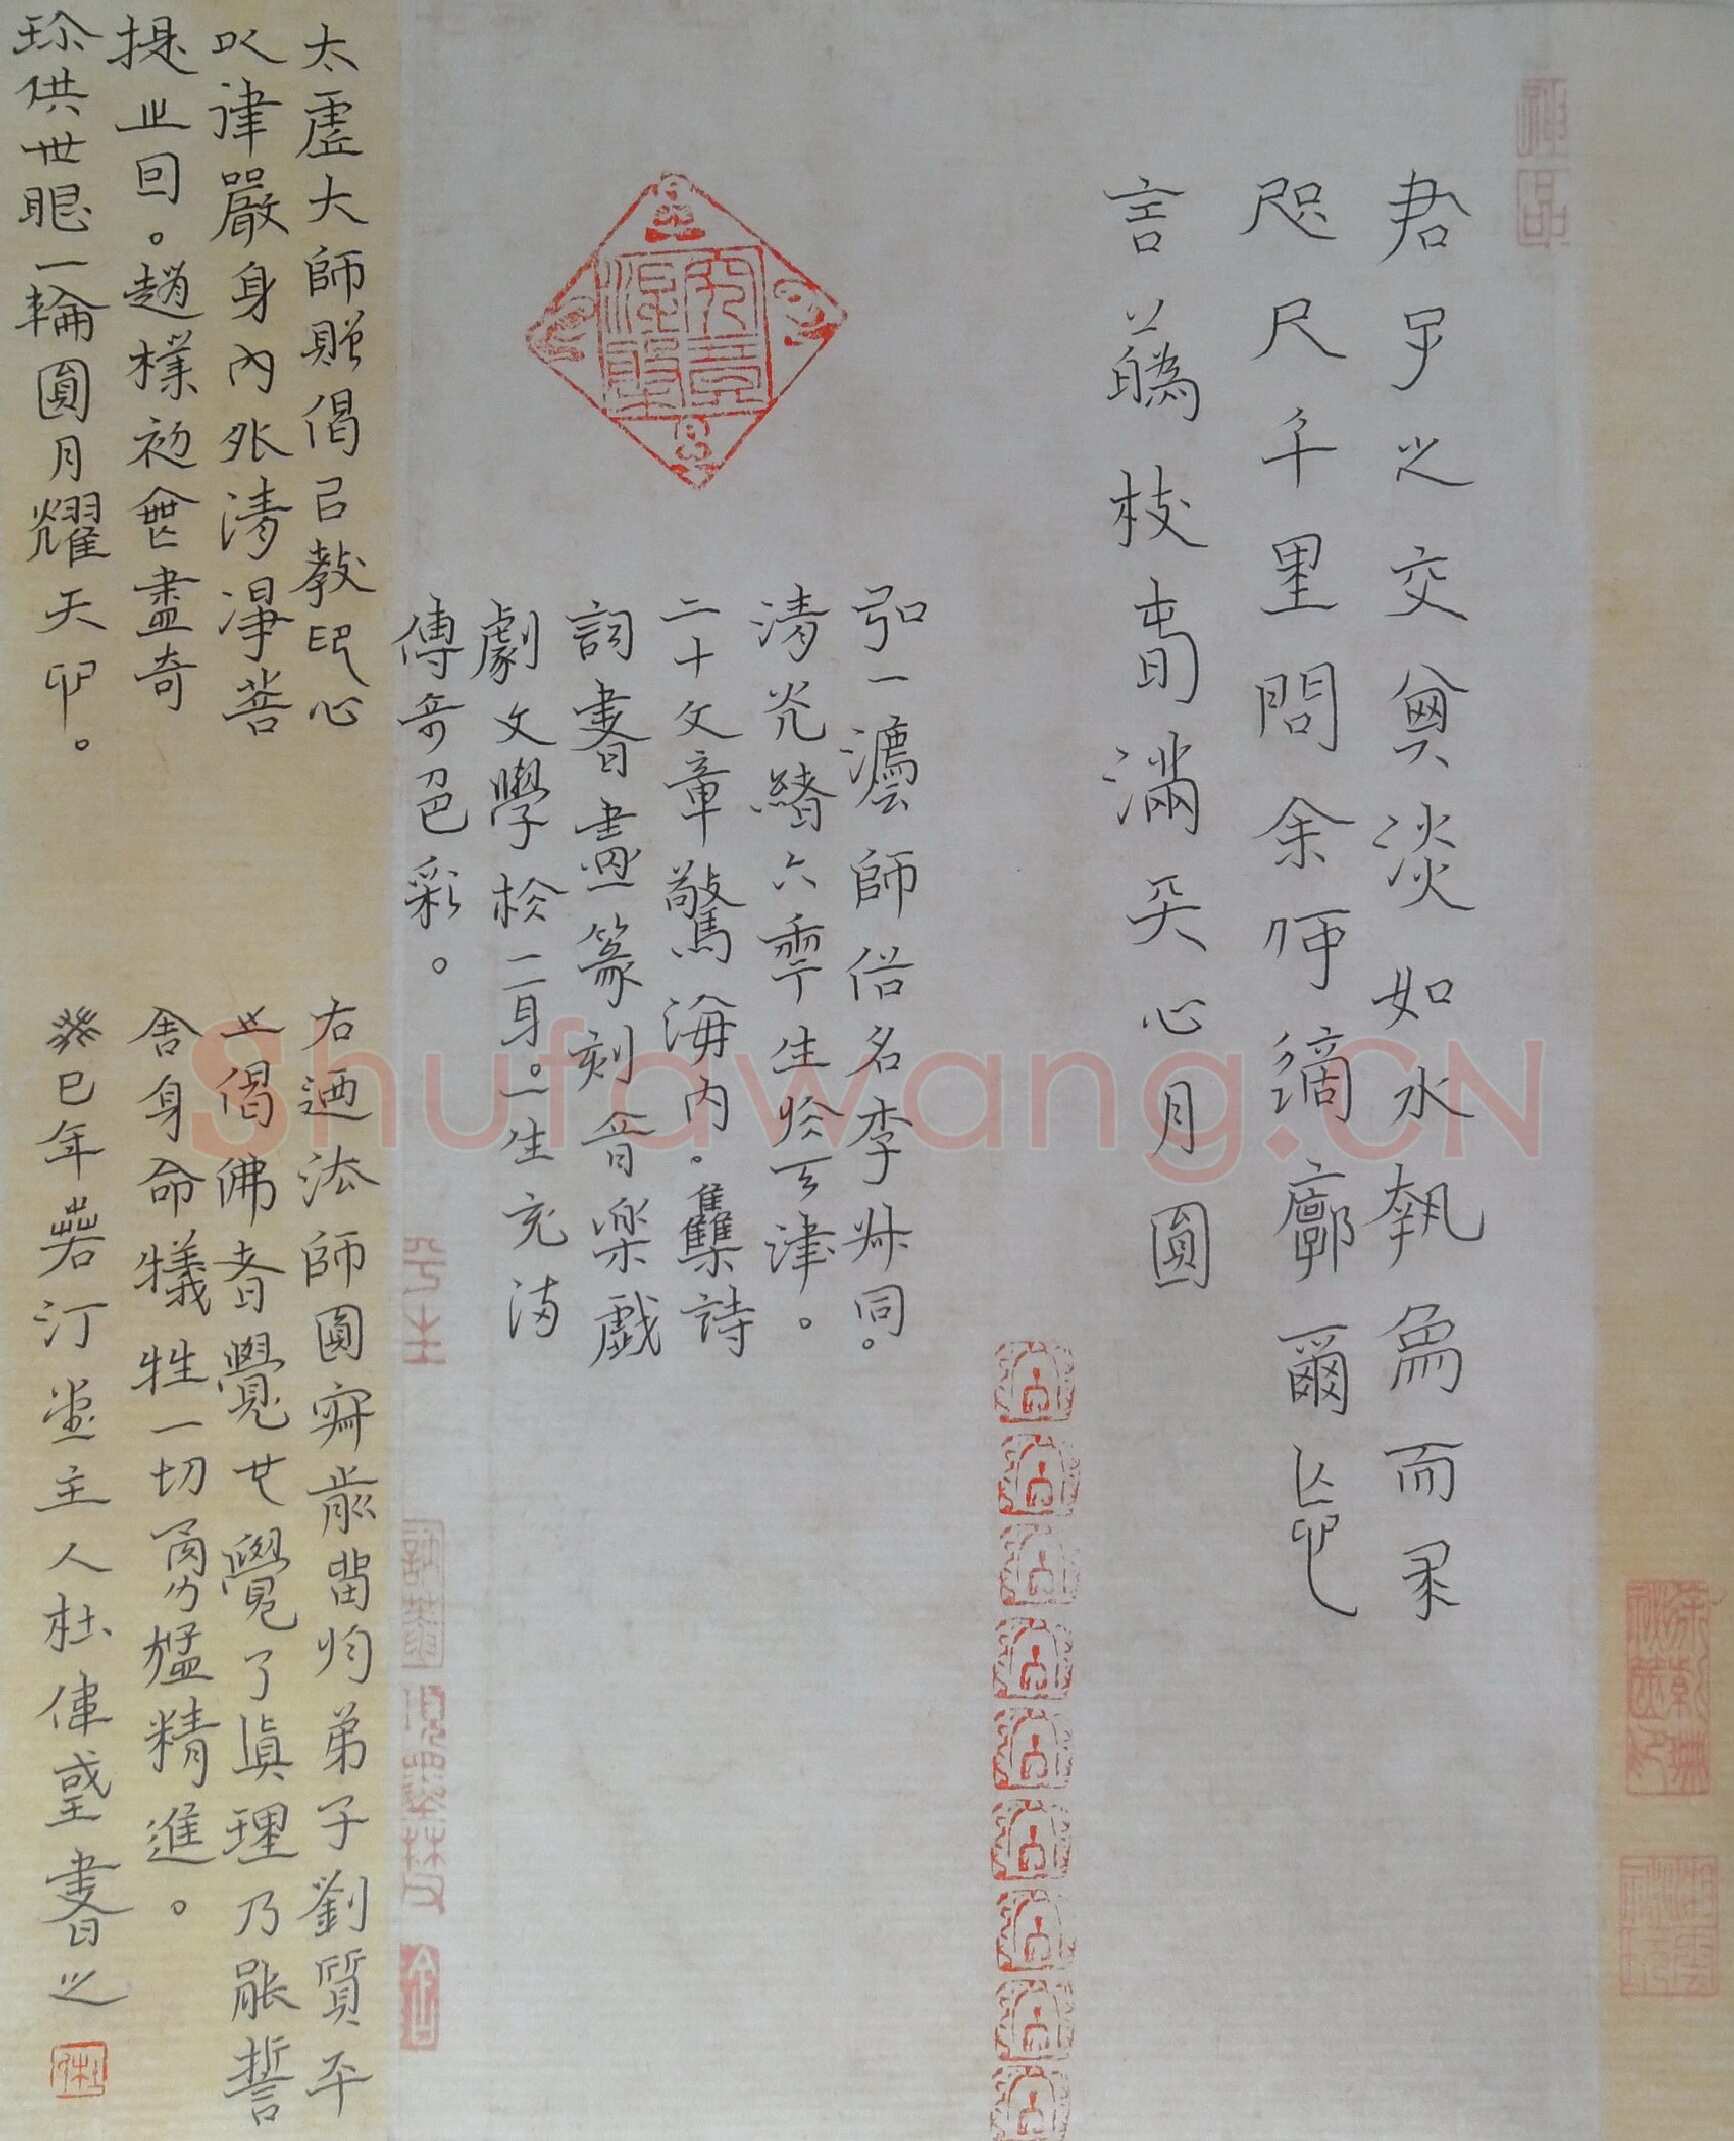 君子之交其淡如水執象而求
咫尺千里問余何適廓爾亡
言華枝春滿天心月圓
弘一灋師俗名李叔同。
清光緒六年生於天津。
二十文章驚海内。集詩
詞書畫篆刻音樂戲
劇文學於一身。一生充滿
傳奇色彩。
太虛大師贈偈曰教印心
以律嚴身內外清淨菩
提止回。趙樸初會盡奇
珍供世眼一輪圓月耀天心。
右迺法師圓寂前留均弟子劉質平
止偈佛者覺也覺了真理乃能誓
舍身命犧牲一切勇猛精進。
癸巳年若汀堂主人杜偉書之
Shufawang.CN